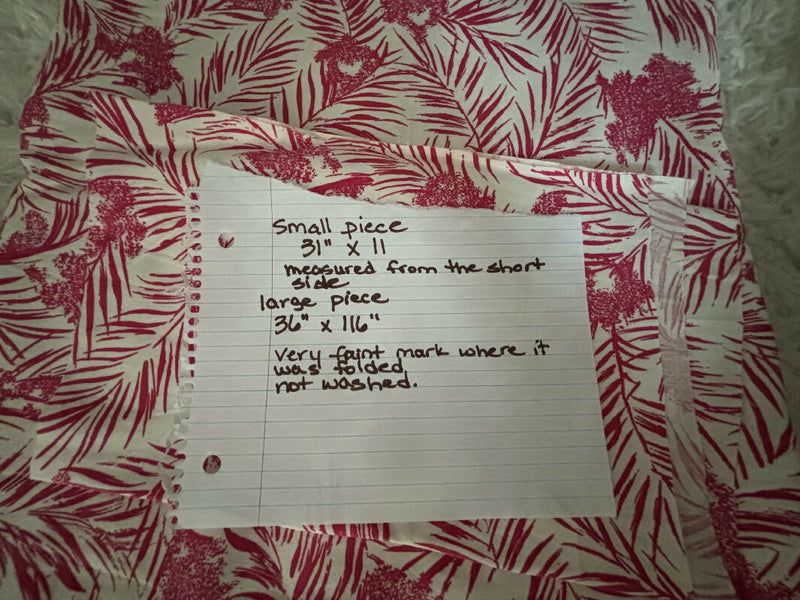 Small piece
31" x 11
measured from the short
side
large piece
36" x 116"
Very faint mark where it
was folded,
not washed.